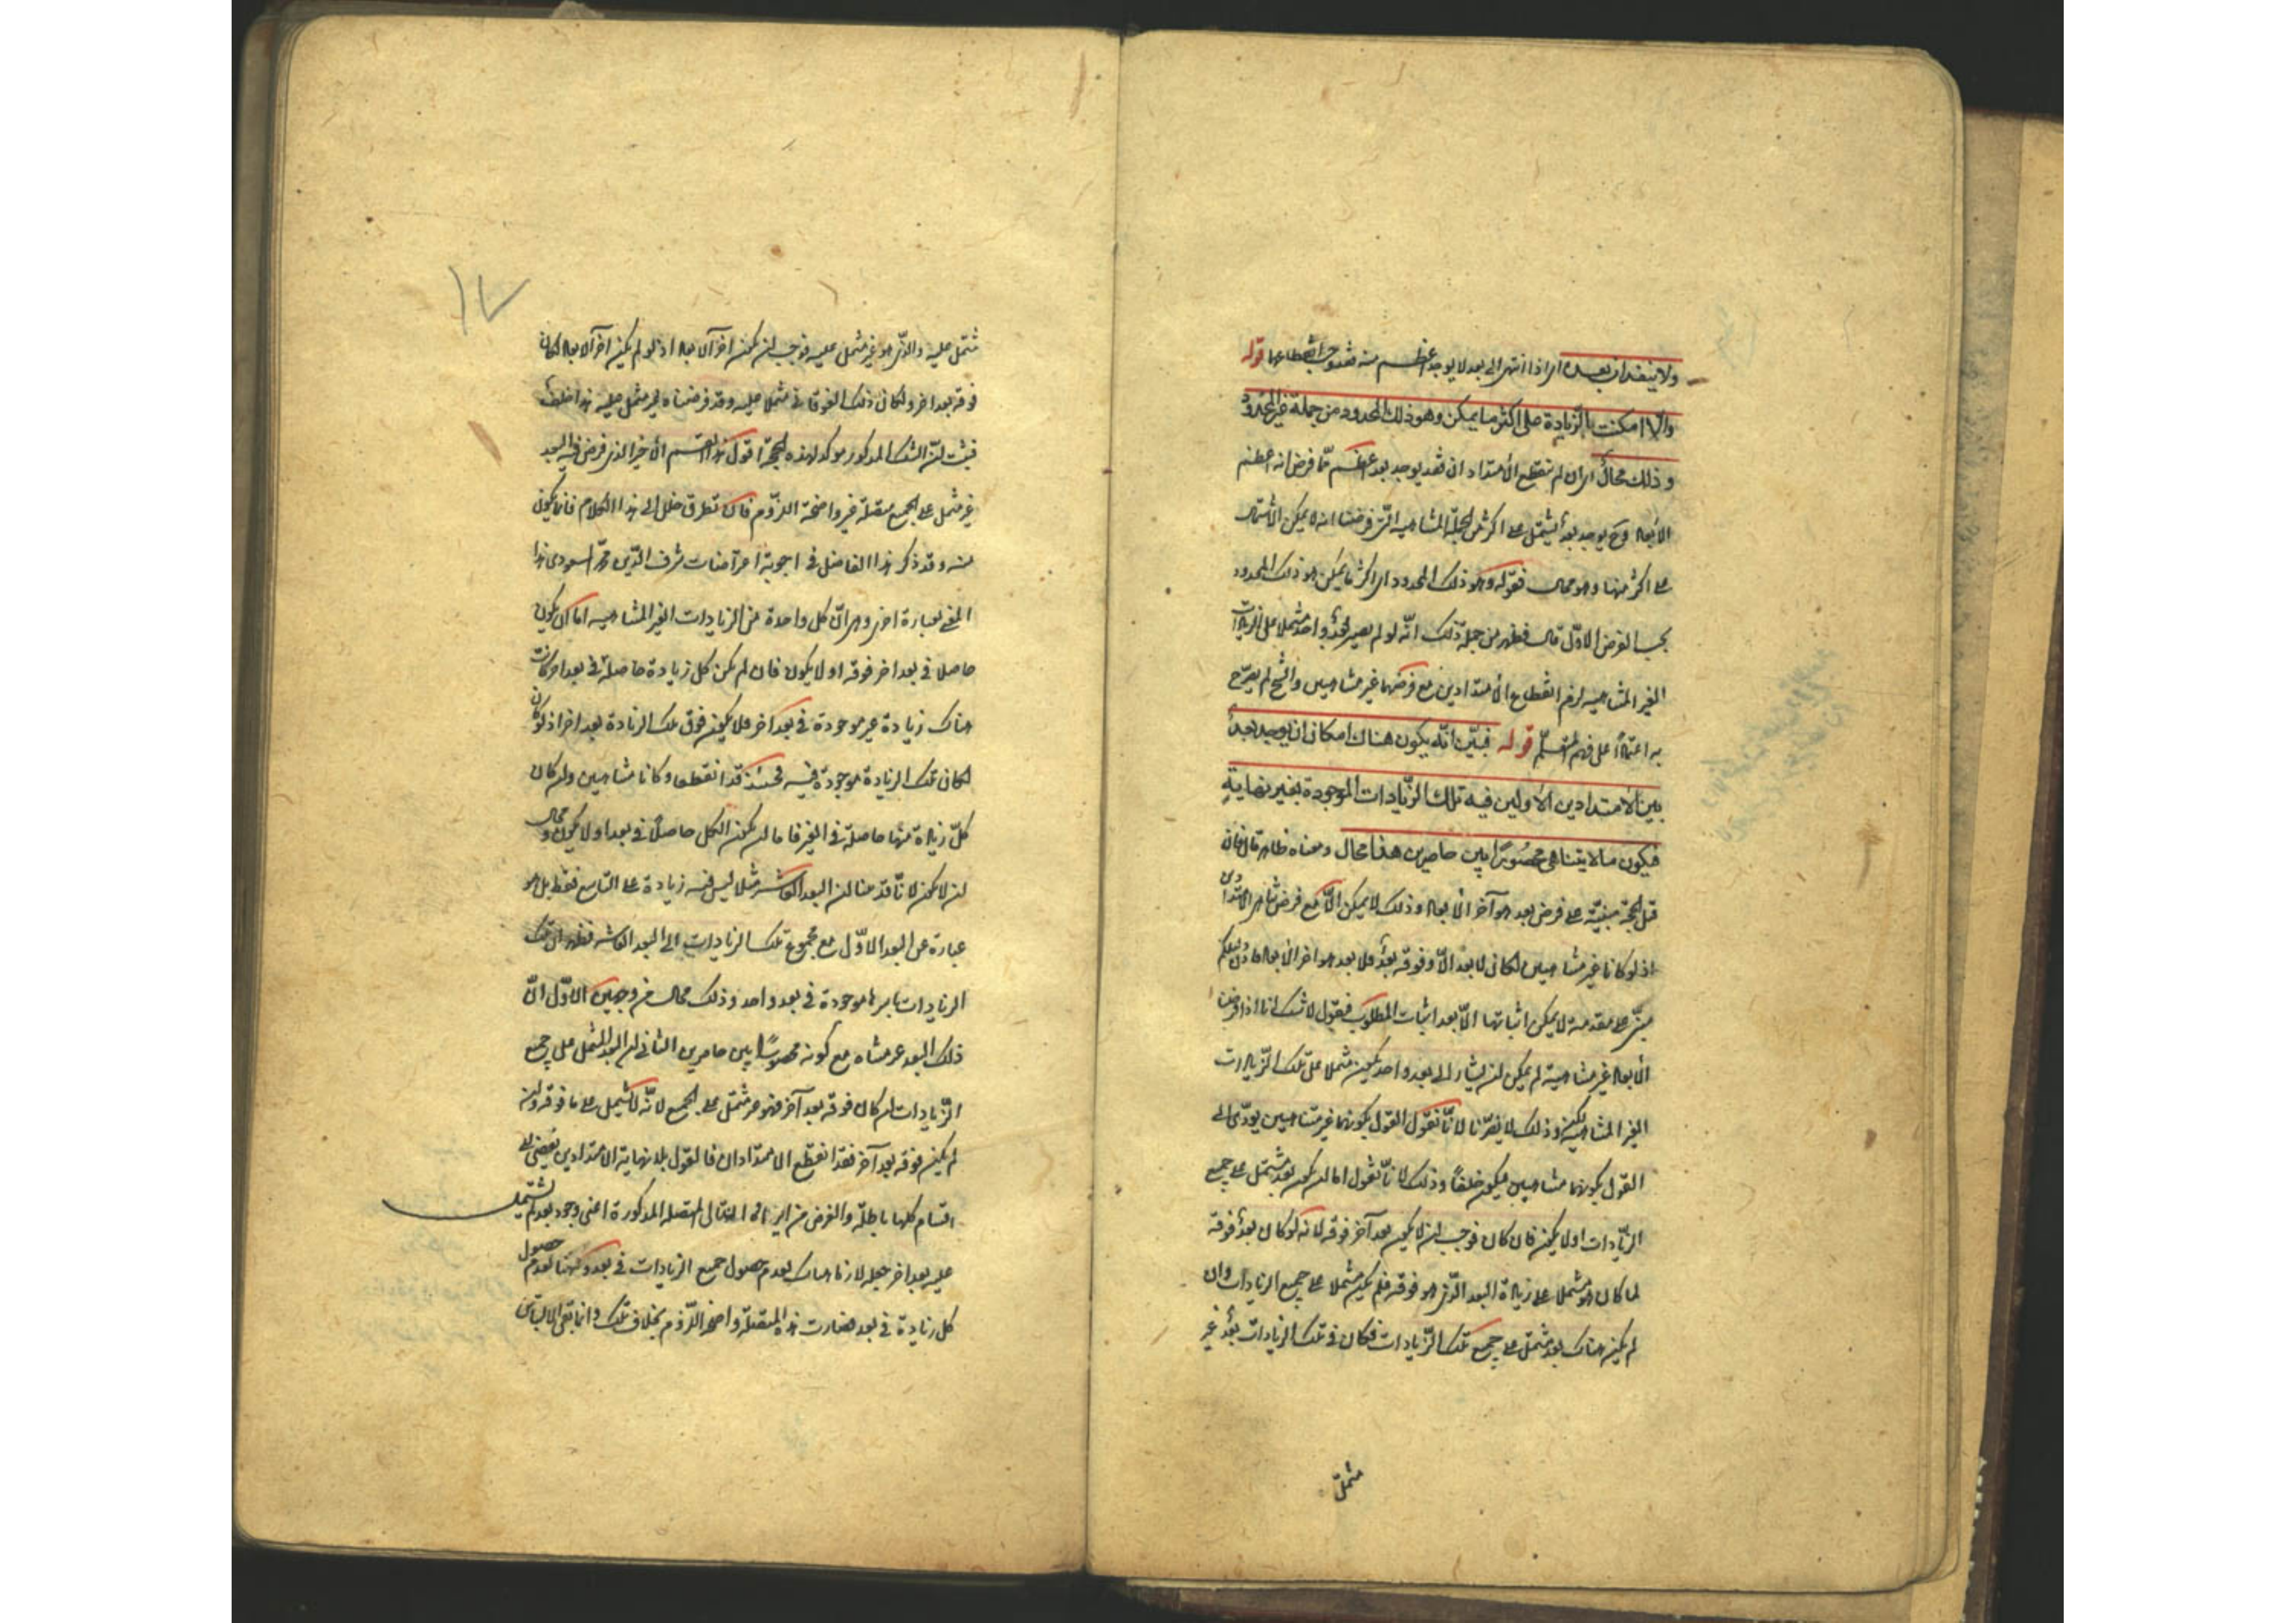 ولا ينفذان بعده اى اذا انتهى الى بعد لا يوجد اعظم منه فقد وجب انقطاعهما قوله
والّا امكنت الزّيادة على اكثر مما يمكن وهو ذلك المحدود من جملة غير المحدود
وذلك محالٌ اى ان لم ينقطع الامتدادان فقد يوجد بعد اعظم مّما فرض انه اعظم
الابعاد وح يوجد بعدٌ يشتمل على اكثر من الجملة المتناهية الّتى فرضنا انه لا يمكن الاشتمال
على اكثر منها وهو محال فقوله وهو ذلك المحدود اى اكثر ما يمكن هو ذلك المحدود
بحسب الفرض الاوّل قال فظهر من جملة ذلك انّه لو لم يصر بعدٌ واحد مشتملا على الزيادات
الغير المتناهية لزم انقطاع الامتدادين مع فرضهما غير متناهيين والشيخ لم يصرّح
به اعتمادا على فهم المتعلّم قوله فبيّن انّه يكون هناك امكان ان يوجد بعدٌ
بين الامتدادين الاولين فيه تلك الزّيادات الموجودة بغير نهايةٍ
فيكون ما لا يتناهى محصُورًا بين حاصرين هذا محال ومعناه ظاهر قال فان
قيل الحجّة مبنيّة على فرض بعد هو آخر الابعاد وذلك لا يمكن الّا مع فرض تناهى الامتدادين
اذ لو كانا غير متناهيين لكان لا بعد الّا وفوقه بعدٌ فلا بعد هو آخر الابعاد فاذن دليلكم
مبنىّ على مقدمة لا يمكن اثباتها الّا بعد اثبات المطلوب فنقول لا شك انا اذا فرضنا
الابعاد غير متناهية لم يمكن ان يشار الى بعد واحد يكون مشتملا على تلك الزّيادات
الغير المتناهية لكن ذلك لا يضرّنا لانّا نقول القول بكونهما غير متناهيين يؤدّى الى
القول بكونهما متناهيين فيكون خلفاً وذلك لانّا نقول اما ان يكون بعد مشتمل على جميع
الزّيادات او لا يكون فان كان فوجب ان لا يكون بعد آخر فوقه لانه لو كان بعدٌ فوقه
لما كان هو مشتملا على زيادة البعد الّذى هو فوقه فلم يكن مشتملا على جميع الزيادات وان
لم يكن هناك بعد مشتمل على جميع تلك الزّيادات فكان فى تلك الزيادات بعدٌ غير
مشتمل
١٧
مشتمل عليه والّذى هو غير مشتمل عليه فوجب ان يكون آخر الابعاد اذ لو لم يكن آخر الابعاد لكان
فوقه بعد آخر ولكان ذلك الفوقانى مشتملا عليه وقد فرضناه غير مشتمل عليه هذا خلف
فثبت انّ الشك المذكور مؤكد لهذه الحجّة اقول هذا القسم الاخير الذى فرض فيه البعد
غير مشتمل على الجميع متصلة غير واضحة اللزّوم فان تطرق خلل الى هذا الكلام فانما يكون
منه وقد ذكر هذا الفاضل فى اجوبة اعتراضات شرف الدّين محمّد المسعودى هذا
المعنى بعبارة اخرى وهى انّ كل واحدة من الزيادات الغير المتناهية اما ان يكون
حاصلا فى بعد آخر فوقه او لا يكون فان لم يكن كل زيادة حاصلة فى بعد آخر كانت
هناك زيادة غير موجودة فى بعد آخر فلا يكون فوق تلك الزيادة بعد آخر اذ لو كان
لكان تلك الزيادة موجودة فيه فحينئذ قد انقطعا وكانا متناهيين وان كان
كلّ زيادة منها حاصلة فى الغير فاما ان يكون الكل حاصلٌ فى بعد او لا يكون ومحال
ان لا يكون لانّا قد بينا ان البعد العاشر مثلا ليس فيه زيادة على التاسع فقط بل هو
عبارة عن البعد الاوّل مع مجموع تلك الزيادات الى البعد العاشر فظهر ان تلك
الزيادات باسرها موجودة فى بعد واحد وذلك محال من وجهين الاوّل انّ
ذلك البعد غير متناه مع كونه محصورًا بين حاصرين الثانى ان البعد المشتمل على جميع
الزّيادات ان كان فوقه بعد آخر فهو غير مشتمل على الجميع لانّه لا يشتمل على ما فوقه وان
لم يكن فوقه بعد آخر فقد انقطع الامتدادان فالقول بلا نهاية الامتدادين يفضى الى
اقسام كلها باطلة والغرض من ايراد التالى المتصلة المذكورة اعنى وجود بعد لم يشتمل
عليه بعد آخر جعله لازما هناك لعدم حصول جميع الزيادات فى بعد وههنا لعدم حصول
كل زيادة فى بعد فصارت هذه المتصلة واضحة اللّزوم بخلاف تلك وانما بقى الالتباس